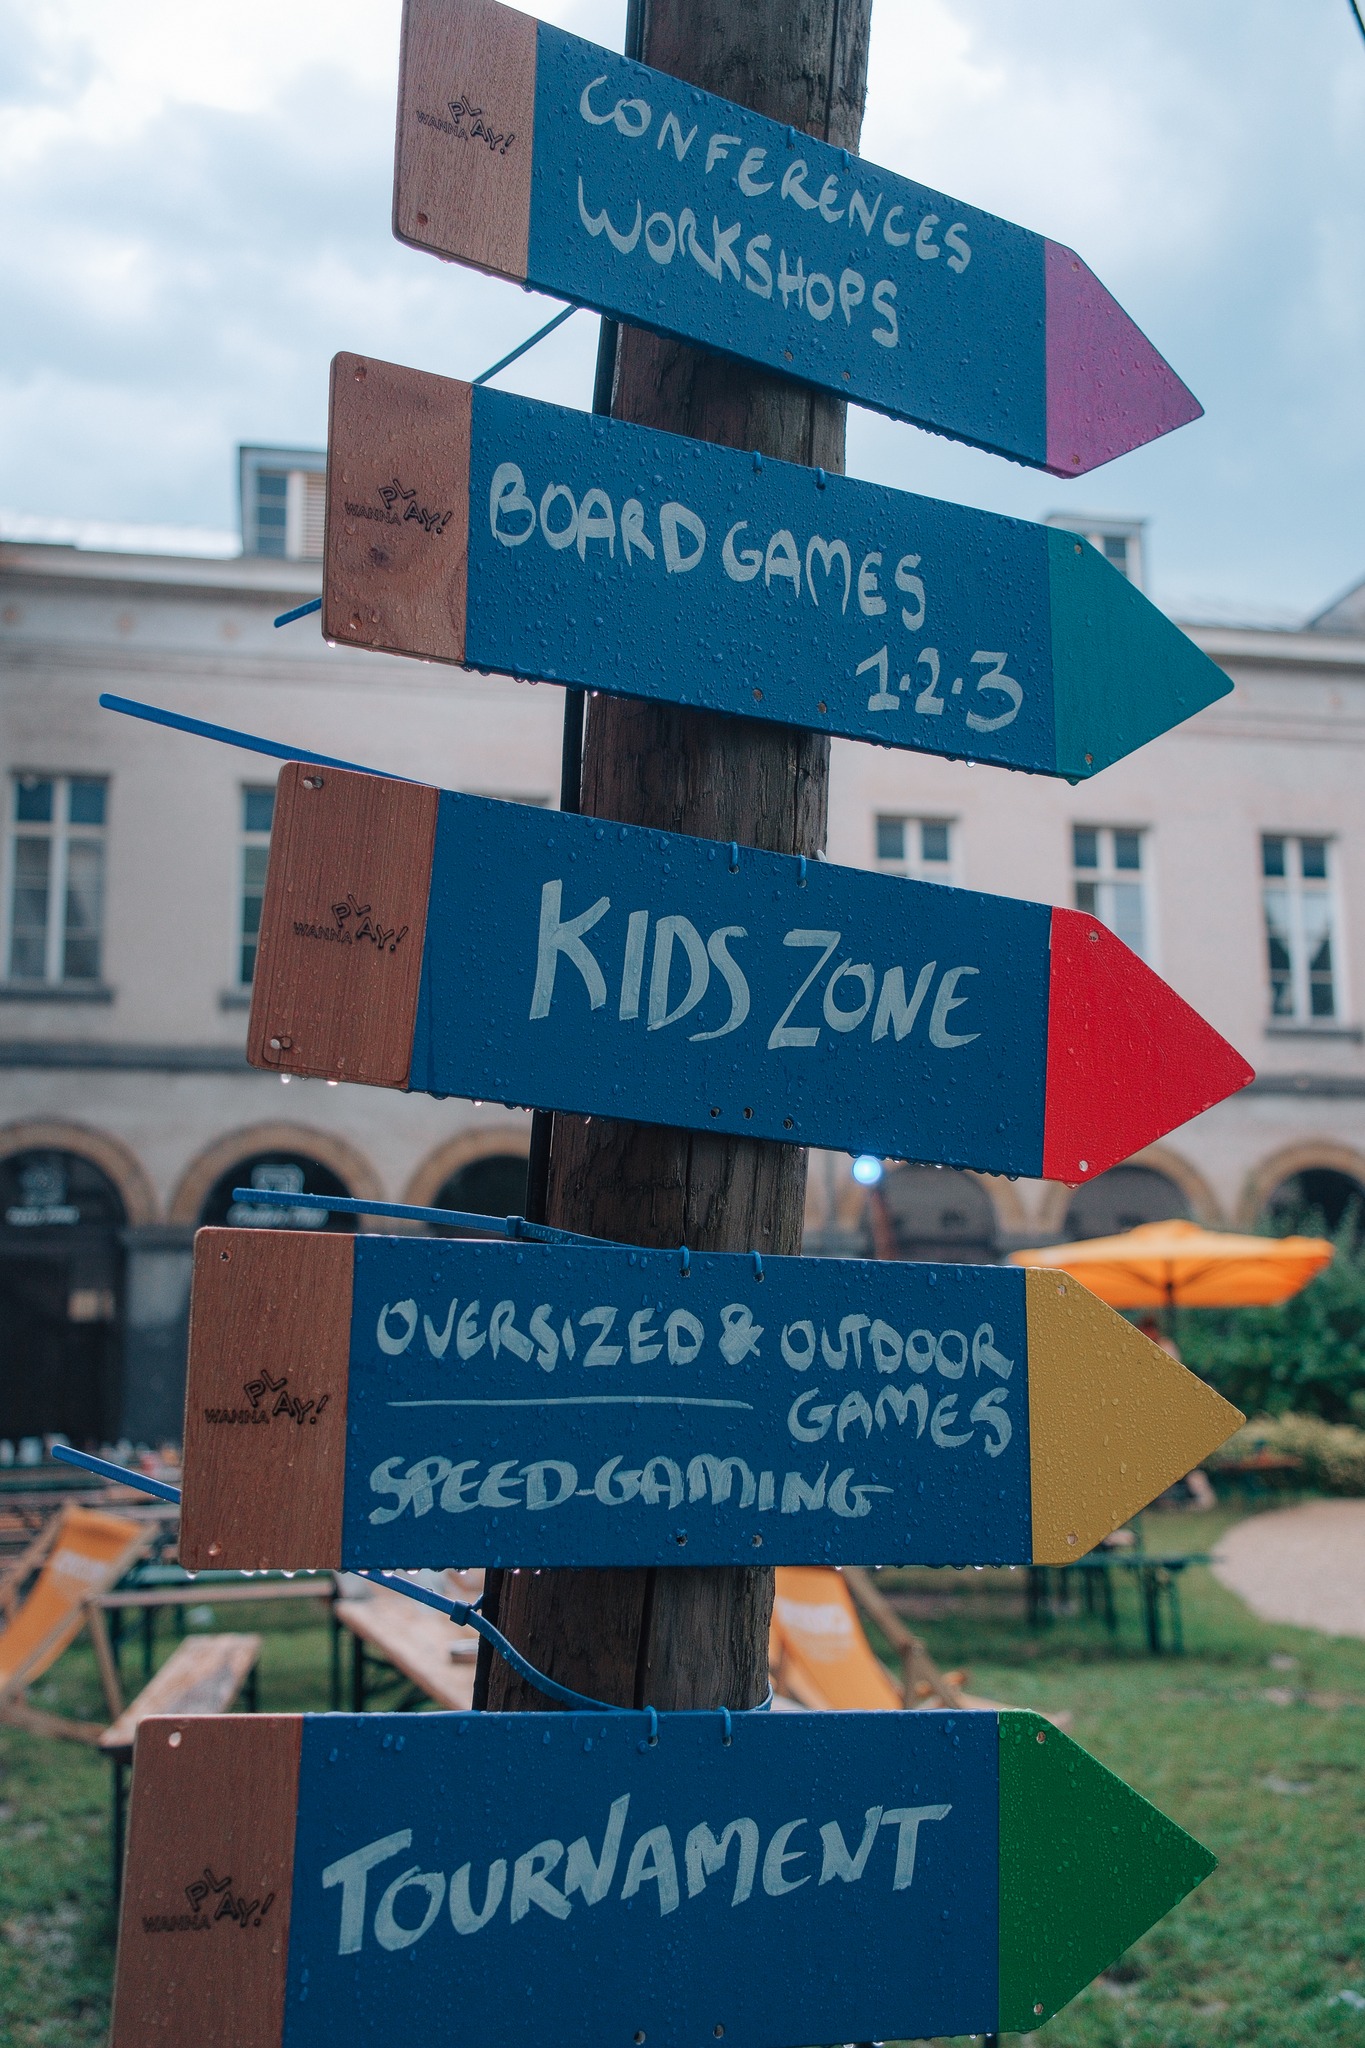 WANNA PLAY!
CONFERENCES
WORKSHOPS
WANNA PLAY!
BOARD GAMES
1.2.3
WANNA PLAY!
KIDS ZONE
WANNA PLAY!
OVERSIZED & OUTDOOR
GAMES
SPEED-GAMING
WANNA PLAY!
TOURNAMENT